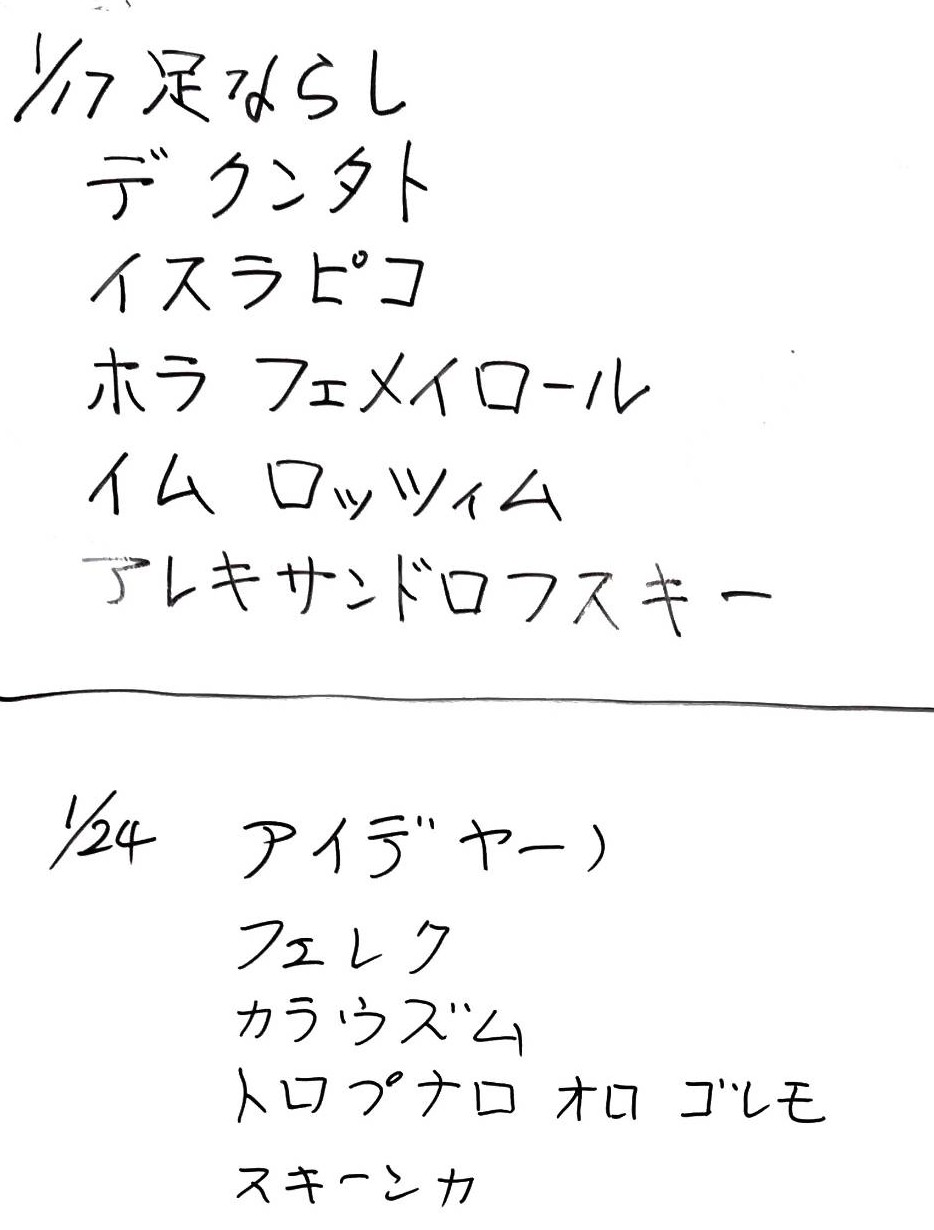 1/17 足ならし
デ クンタト
イスラピコ
ホラ フェメイロール
イム ロッツィム
アレキサンドロフスキー
1/24 アイデヤーノ
フェレク
カラウズム
トロプナロ オロ ゴレモ
スキーンカ